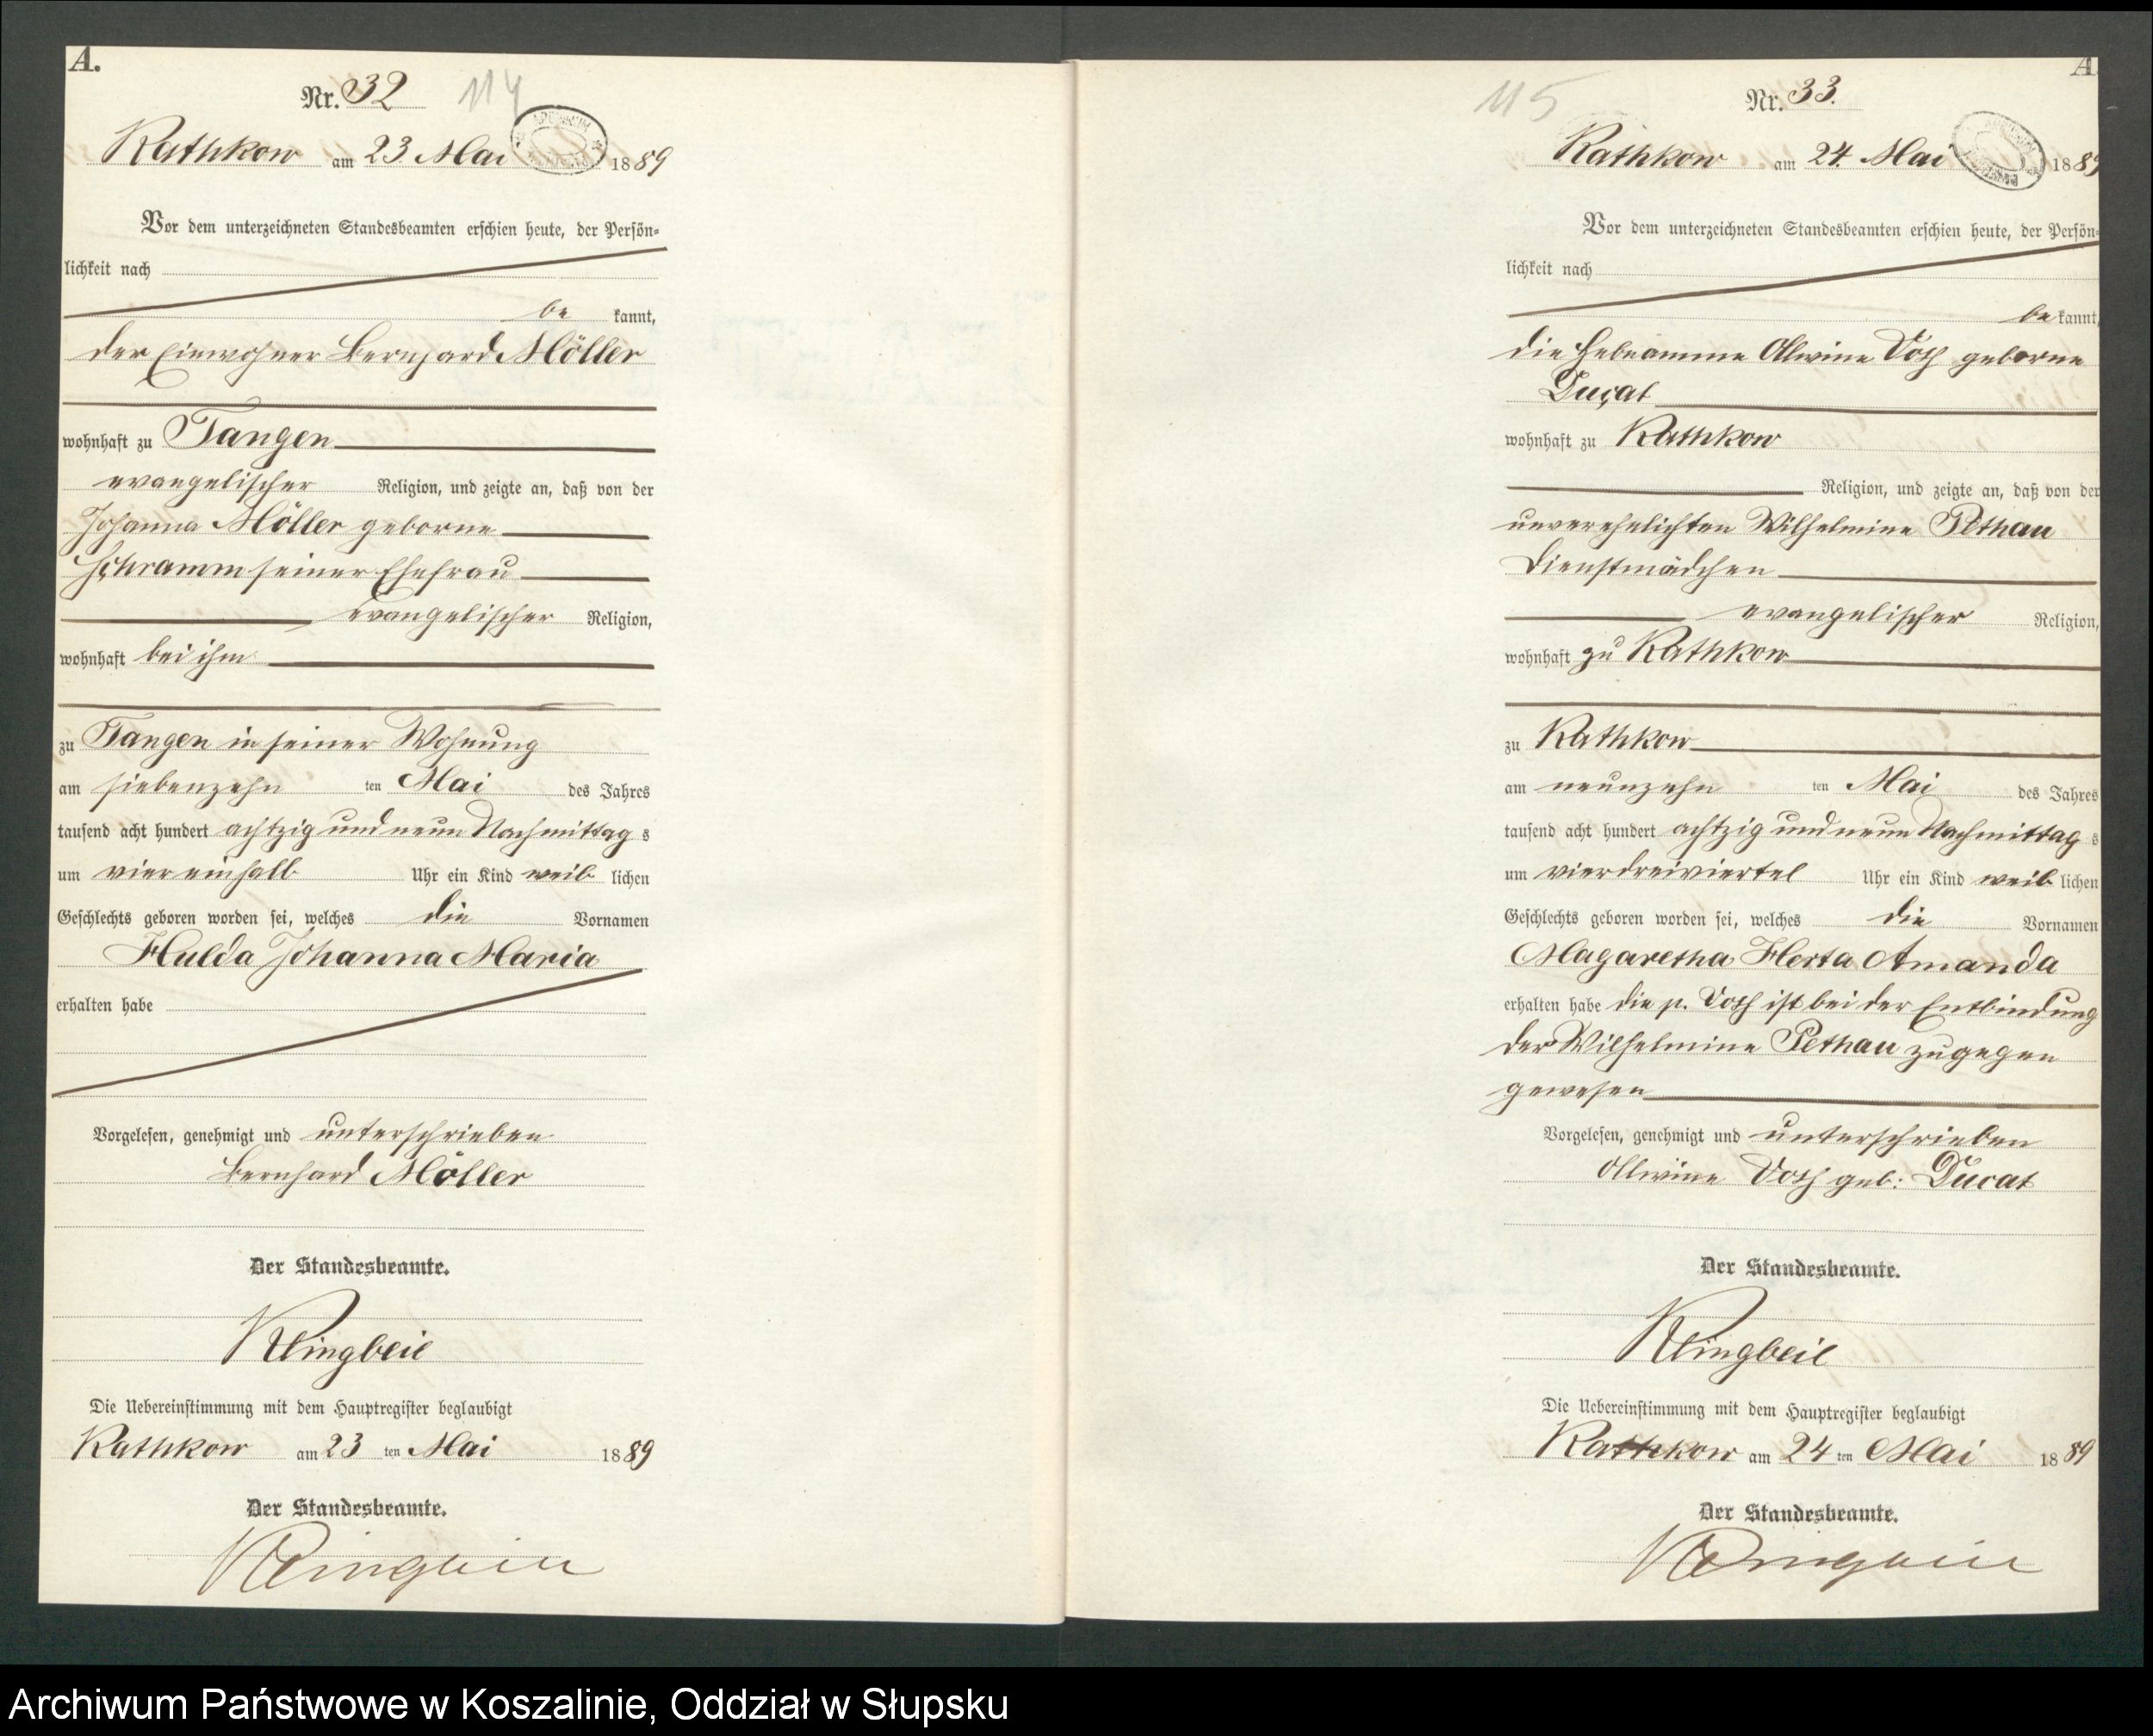 A.
Nr. 32
114
Rathkow am 23 Mai 1889
Vor dem unterzeichneten Standesbeamten erschien heute, der Persön-
lichkeit nach
be kannt,
der Einwohner Bernhard Möller
wohnhaft zu Tangen
evangelischer Religion, und zeigte an, daß von der
Johanna Möller geborne
Schramm seiner Ehefrau
evangelischer Religion,
wohnhaft bei ihm
zu Tangen in seiner Wohnung
am siebenzehn ten Mai des Jahres
tausend acht hundert achtzig und neun Nachmittag s
um vier einhalb Uhr ein Kind weib lichen
Geschlechts geboren worden sei, welches die Vornamen
Hulda Johanna Maria
erhalten habe
Vorgelesen, genehmigt und unterschrieben
Bernhard Möller
Der Standesbeamte.
Klingbeil
Die Uebereinstimmung mit dem Hauptregister beglaubigt
Rathkow am 23 ten Mai 1889
Der Standesbeamte.
Klingbeil
A
115
Nr. 33.
Rathkow am 24. Mai 1889
Vor dem unterzeichneten Standesbeamten erschien heute, der Persön-
lichkeit nach
be kannt,
die Hebeamme Allwine Voth geborne
Duçat
wohnhaft zu Rathkow
Religion, und zeigte an, daß von der
unverehelichten Wilhelmine Pethau
Dienstmädchen
evangelischer Religion,
wohnhaft zu Rathkow
zu Rathkow
am neunzehn ten Mai des Jahres
tausend acht hundert achtzig und neun Nachmittag s
um vier dreiviertel Uhr ein Kind weib lichen
Geschlechts geboren worden sei, welches die Vornamen
Magaretha Herta Amanda
erhalten habe die p. Voth ist bei der Entbindung
der Wilhelmine Pethau zugegen
gewesen
Vorgelesen, genehmigt und unterschrieben
Allwine Voth geb: Ducat
Der Standesbeamte.
Klingbeil
Die Uebereinstimmung mit dem Hauptregister beglaubigt
Rathkow am 24 ten Mai 1889
Der Standesbeamte.
Klingbeil
Archiwum Państwowe w Koszalinie, Oddział w Słupsku